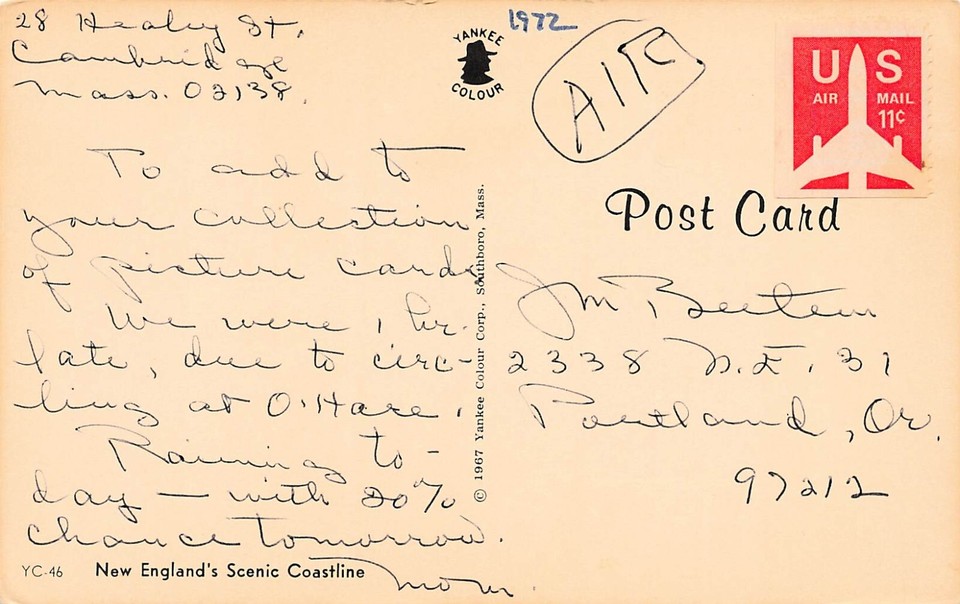 28 Healey St.
Cambridge
Mass. 02138.
To add to
your collection
of picture cards.
We were 1 hr.
late, due to circ-
ling at O'Hare.
Raining to-
day — with 20%
chance tomorrow.
Mom.
YC-46 New England's Scenic Coastline
YANKEE
COLOUR
© 1967 Yankee Colour Corp., Southboro, Mass.
1972
AIR
US
AIR MAIL
11¢
Post Card
Jm
2338 N.E. 31
Portland, Or.
97212